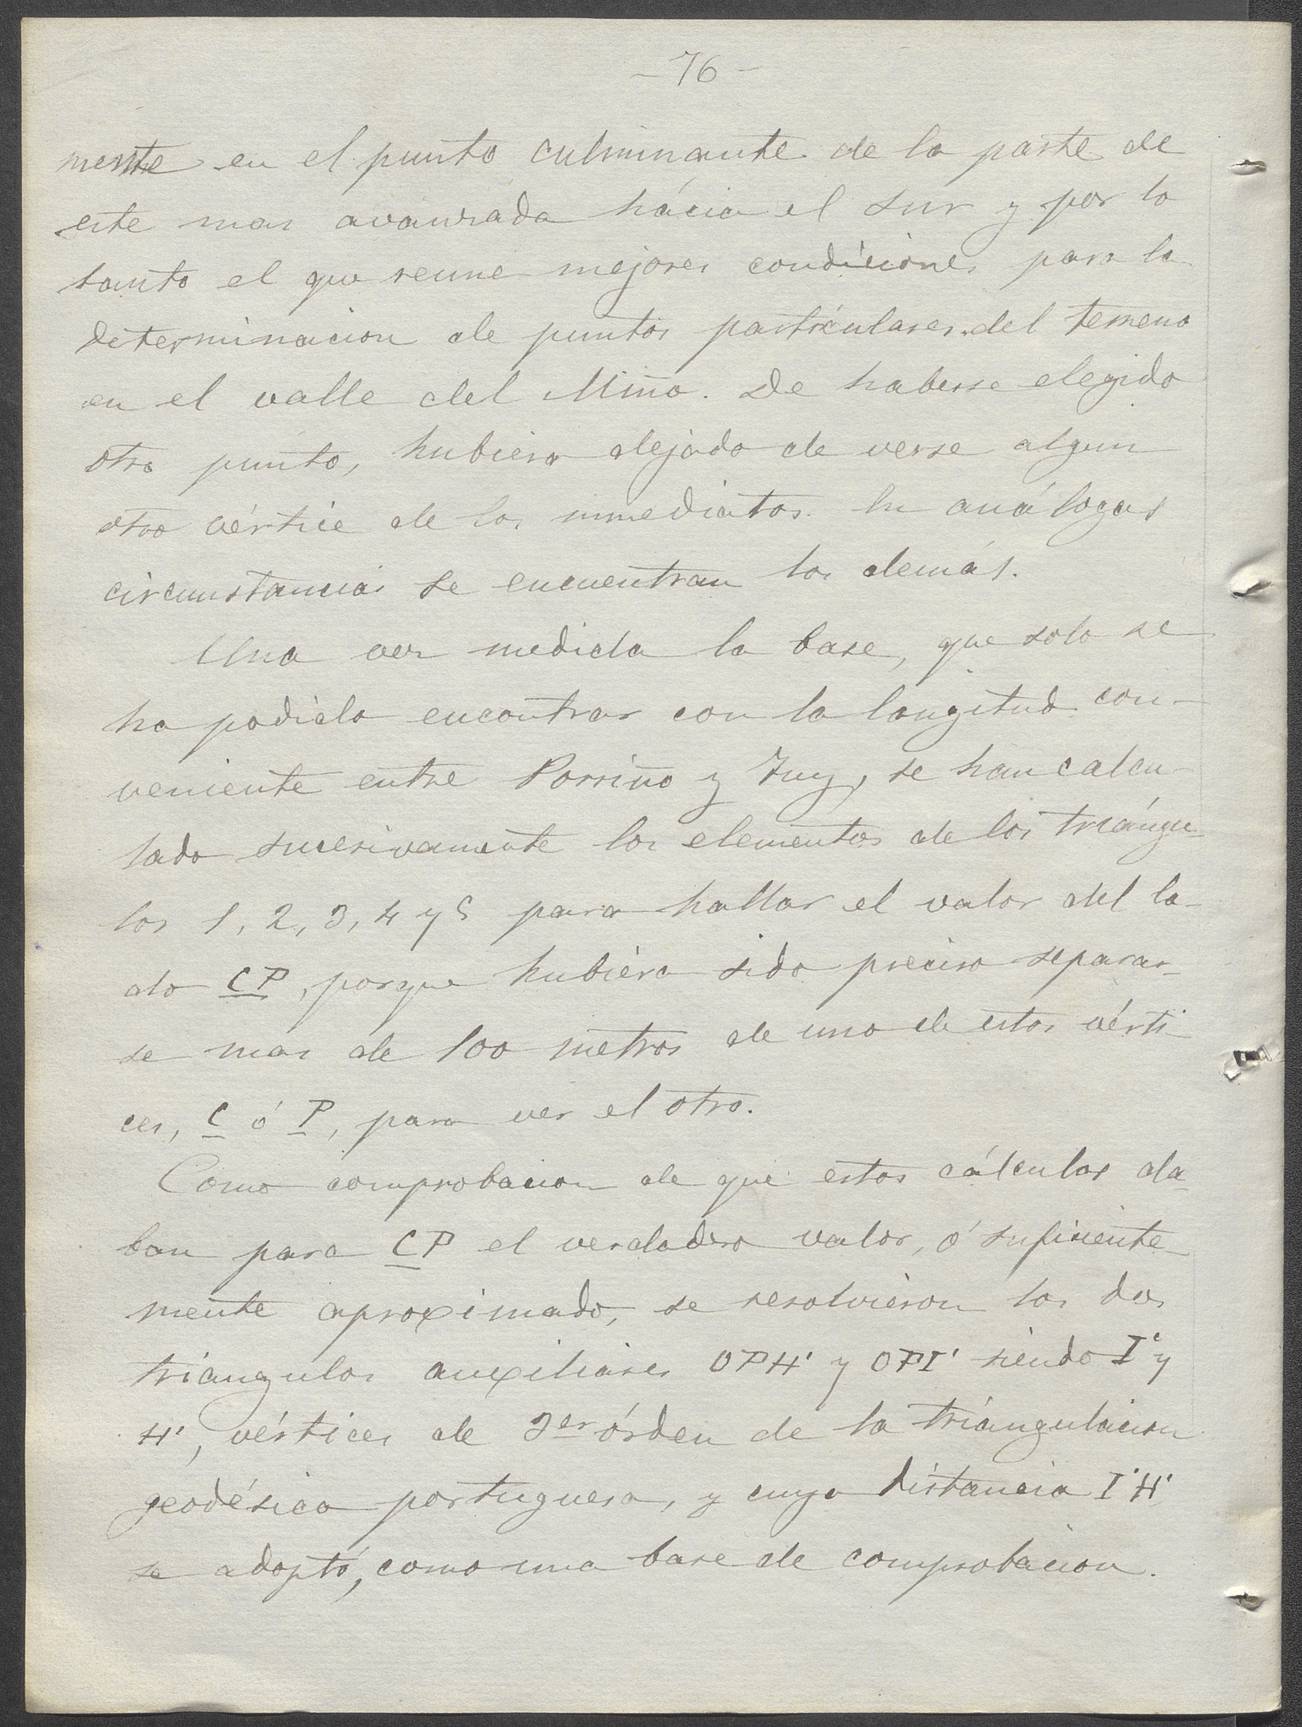 - 76 -
mente en el punto culminante de la parte de
este mas avanzada hácia el sur y por lo
tanto el que reune mejores condiciones para la
determinacion de puntos particulares del terreno
en el valle del Miño. De haberse elegido
otro punto, hubiera dejado de verse algun
otro vértice de los inmediatos. En análogas
circunstancias se encuentran los demás.
Una vez medida la base, que solo se
ha podido encontrar con la longitud con-
veniente entre Porriño y Tuy, se han calcu-
lado sucesivamente los elementos de los triángu-
los 1, 2, 3, 4 y 5 para hallar el valor del la-
do CP, porque hubiera sido preciso separar-
se mas de 100 metros de uno de estos vérti
ces, C ó P, para ver el otro.
Como comprobacion de que estos cálculos da-
ban para CP el verdadero valor, ó suficiente-
mente aproximado, se resolvieron los dos
triangulos auxiliares OPH' y OPI' siendo I' y
H', vértices de 3er órden de la triangulacion
geodésica portuguesa, y cuya distancia I'H'
se adoptó, como una base de comprobacion.